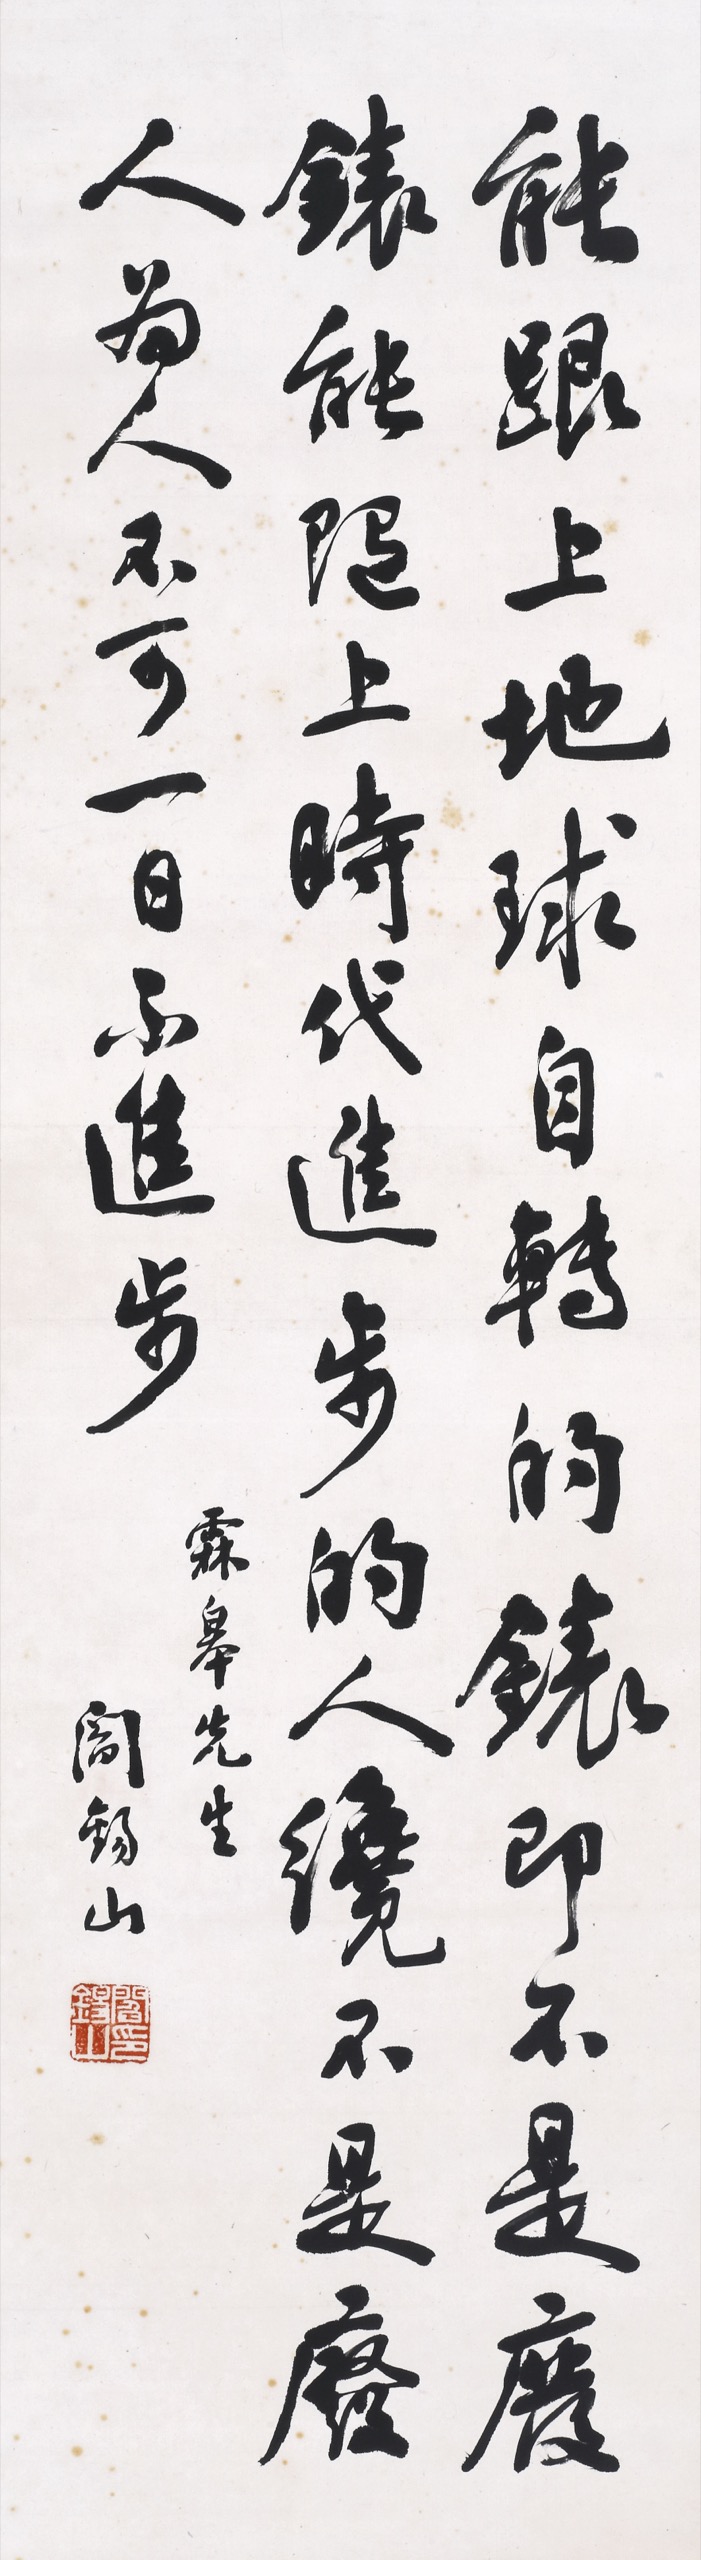 能跟上地球自轉的錶即不是廢
錶能隨上時代進步的人纔不是廢
人為人不可一日不進步
霖皋先生
閻錫山
閻錫山印